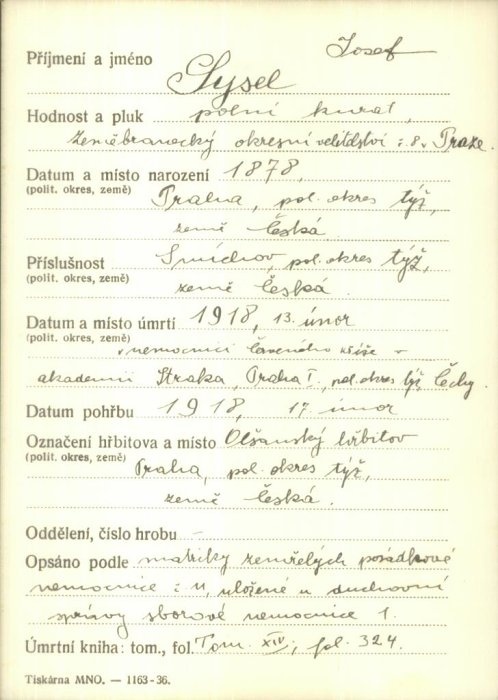 Josef
Příjmení a jméno Sysel
Hodnost a pluk polní kurat,
Zeměbranecký okresní velitelství č. 8 v Praze.
Datum a místo narození 1878,
(polit. okres, země) Praha, pol. okres týž,
země Česká
Příslušnost Smíchov, pol. okres týž,
(polit. okres, země) země Česká
Datum a místo úmrtí 1918, 13. únor
(polit. okres, země) v nemocnici Červeného kříše v
akademii Straka, Praha I, pol. okres týž Čechy.
Datum pohřbu 1918, 17 únor
Označení hřbitova a místo Olšanský hřbitov
(polit. okres, země) Praha, pol. okres týž,
země Česká.
Oddělení, číslo hrobu –
Opsáno podle matriky zemřelých posádkové
nemocnice č. 11, uložené u duchovní
správy sborové nemocnice 1.
Úmrtní kniha: tom., fol. Tom. XIV, fol. 324.
Tiskárna MNO. — 1163-36.